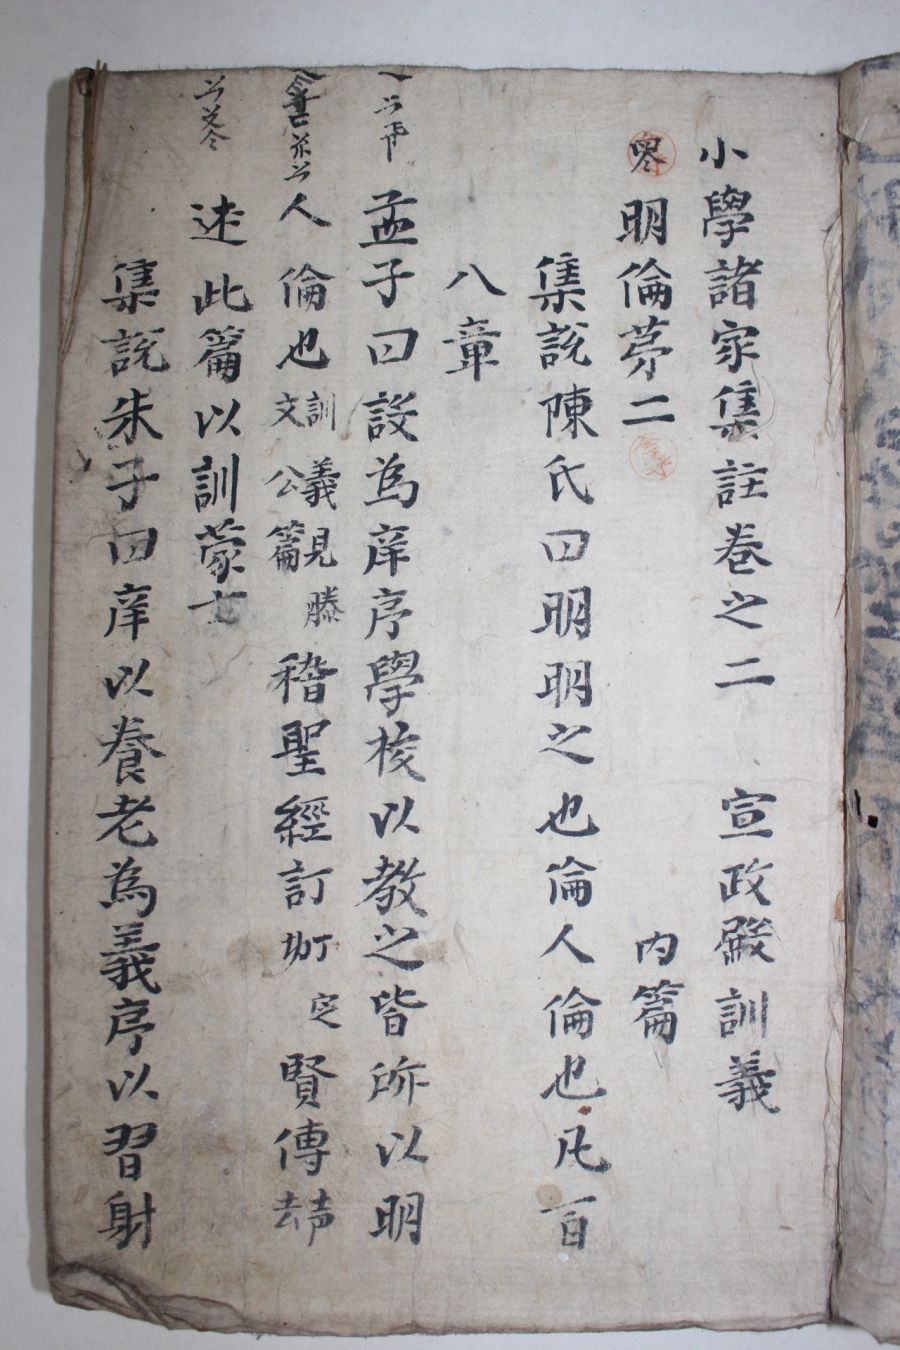 小學諸家集註卷之二 宣政殿訓義
明倫苐二 內篇
集說陳氏曰明明之也倫人倫也凡百
八章
孟子曰設為庠序學校以教之皆所以明
人倫也訓義見滕文公篇稽聖經訂賢傳去声
述此篇以訓蒙士
集說朱子曰庠以養老為義序以習射